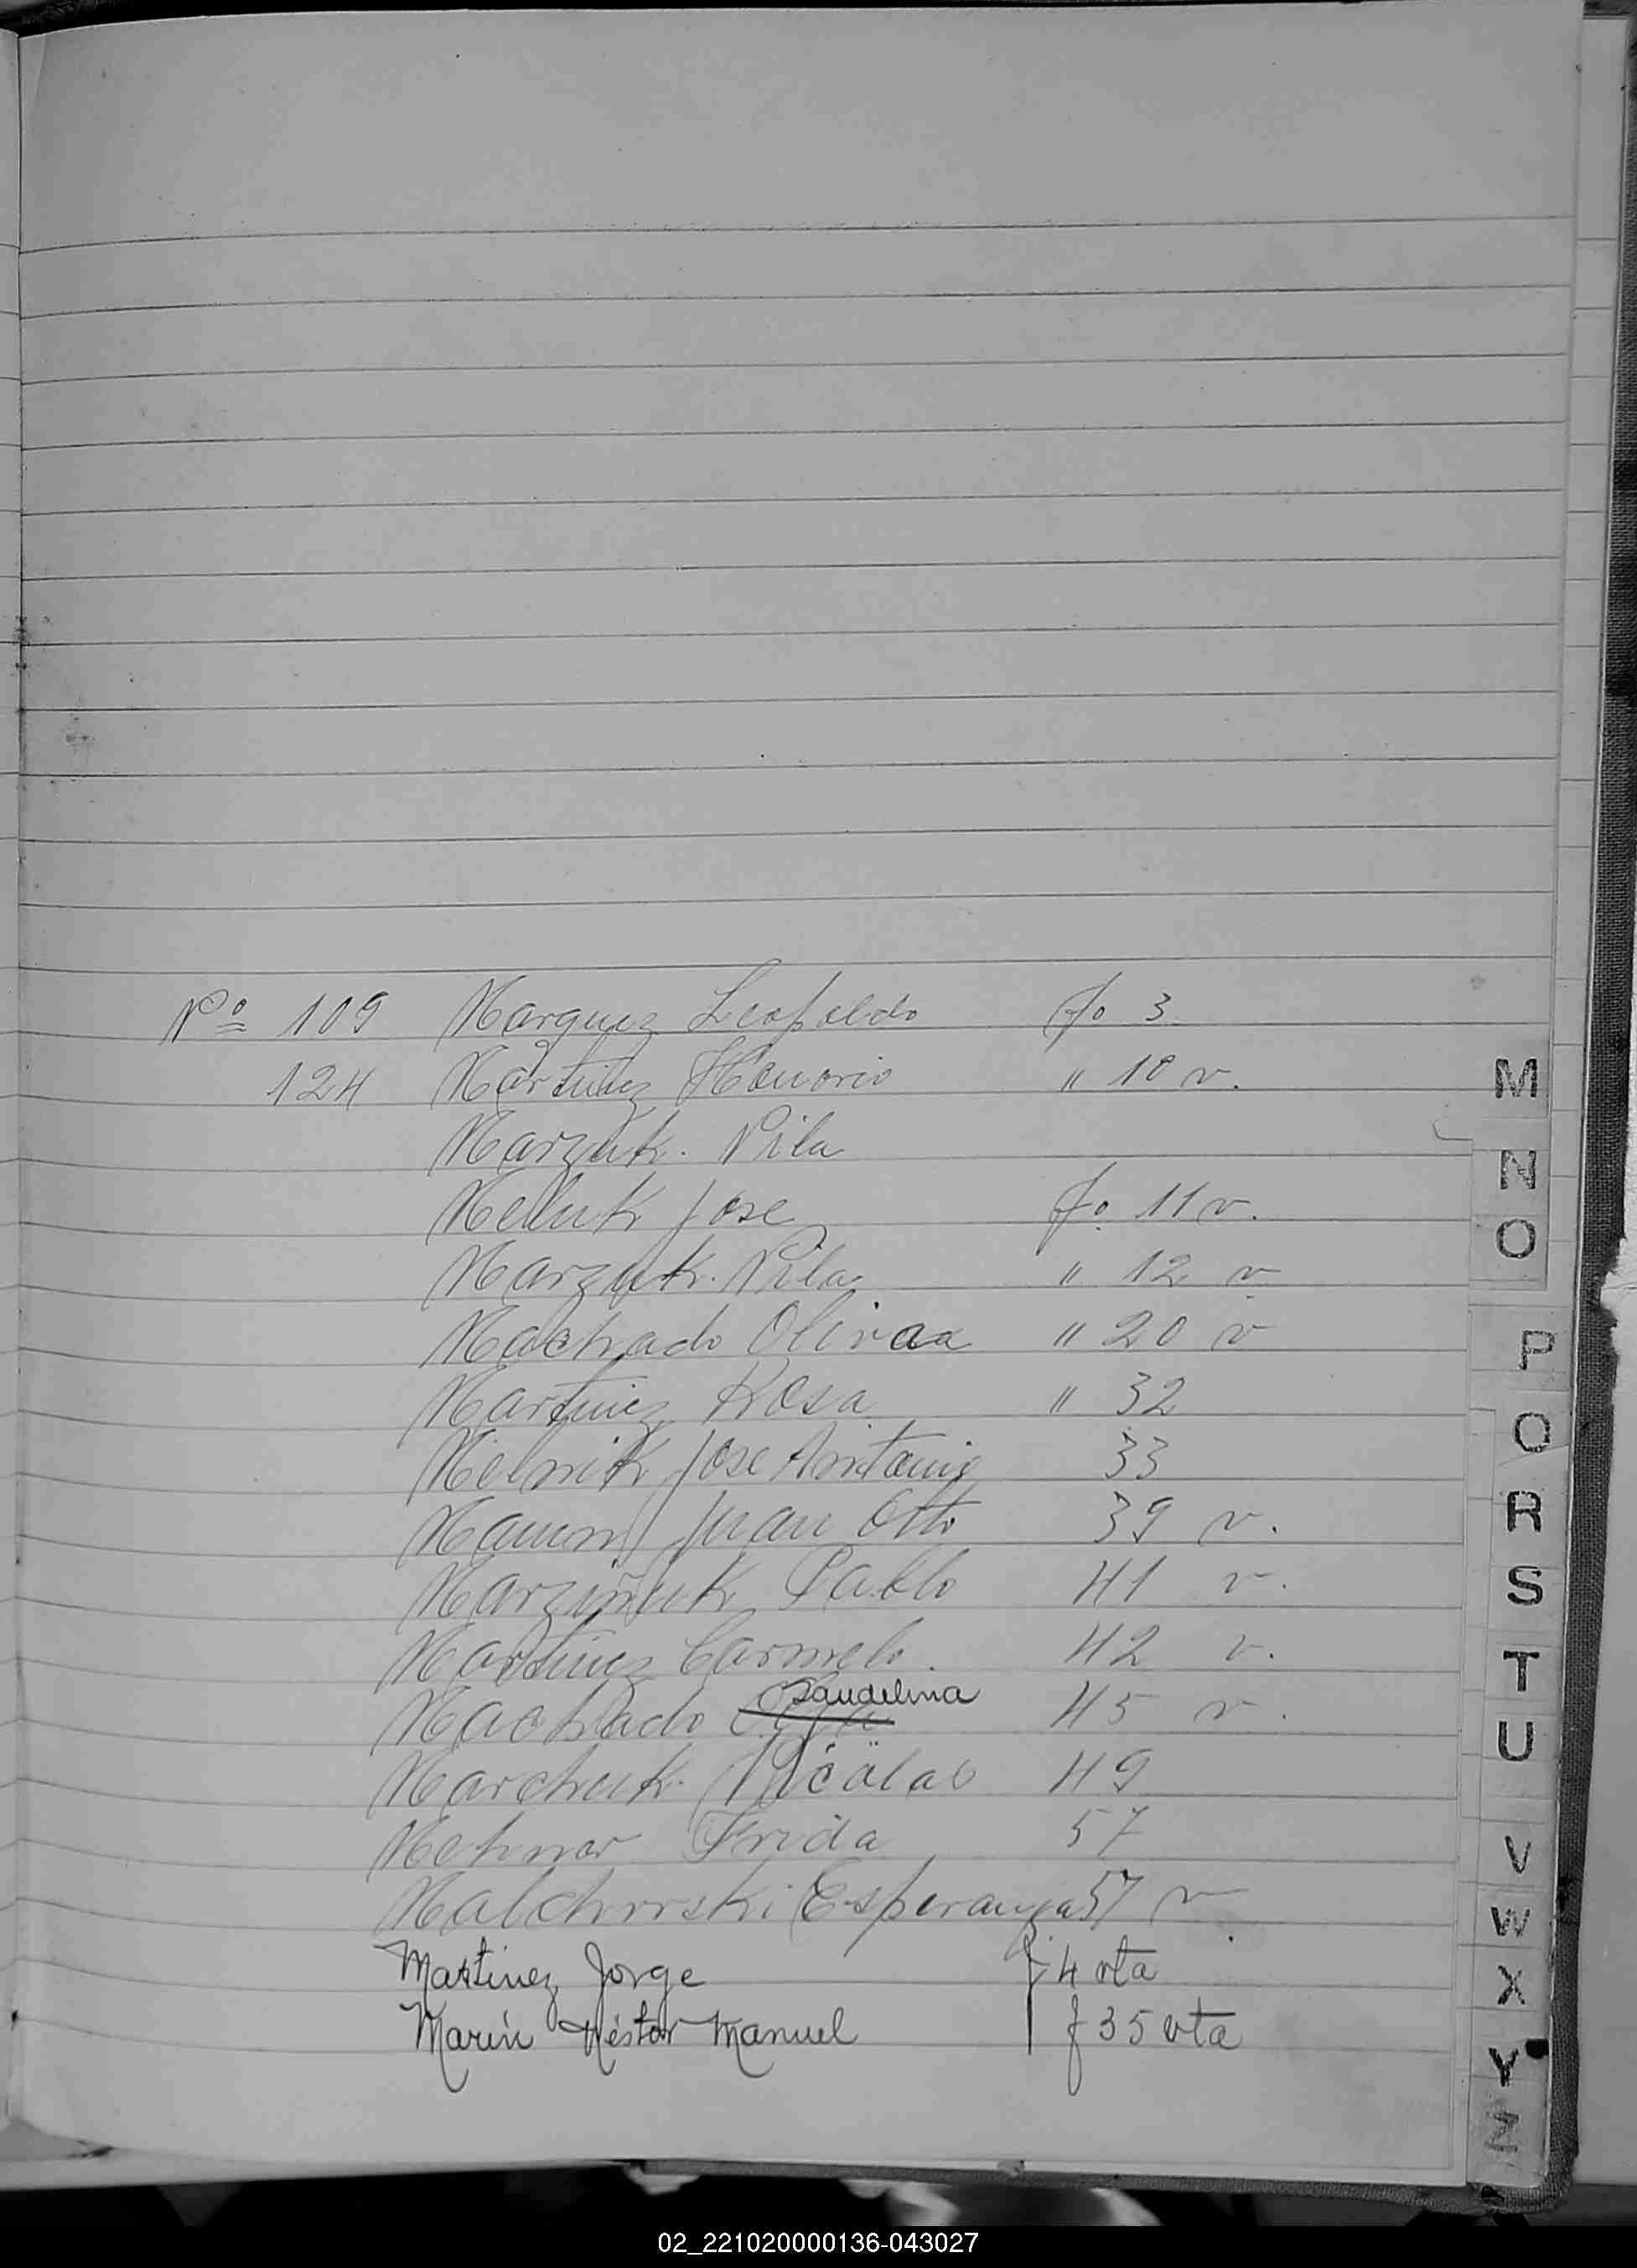 Nº 109 Marquez Leopoldo fo 3
124 Martinez Honorio " 10 v.
Marzuk. Pila
Melluk Jose fo. 11 v.
Marzuk. Pila " 12 v
Machado Olivaa " 20 v
Martinez Rosa " 32
Mielnik Jose Antonio 33
Juan Otto 39 v.
Marziñuk Pablo 41 v.
Martinez Carmelo. 42 v.
Machado Laudelina 45 v.
Marchuk. Nicolas 49
Frida 57
Esperanza 57 v
Martinez Jorge f 4 vta
Marin Néstor Manuel f 35 vta
M
N
O
P
Q
R
S
T
U
V
W
X
Y
Z
02_221020000136-043027